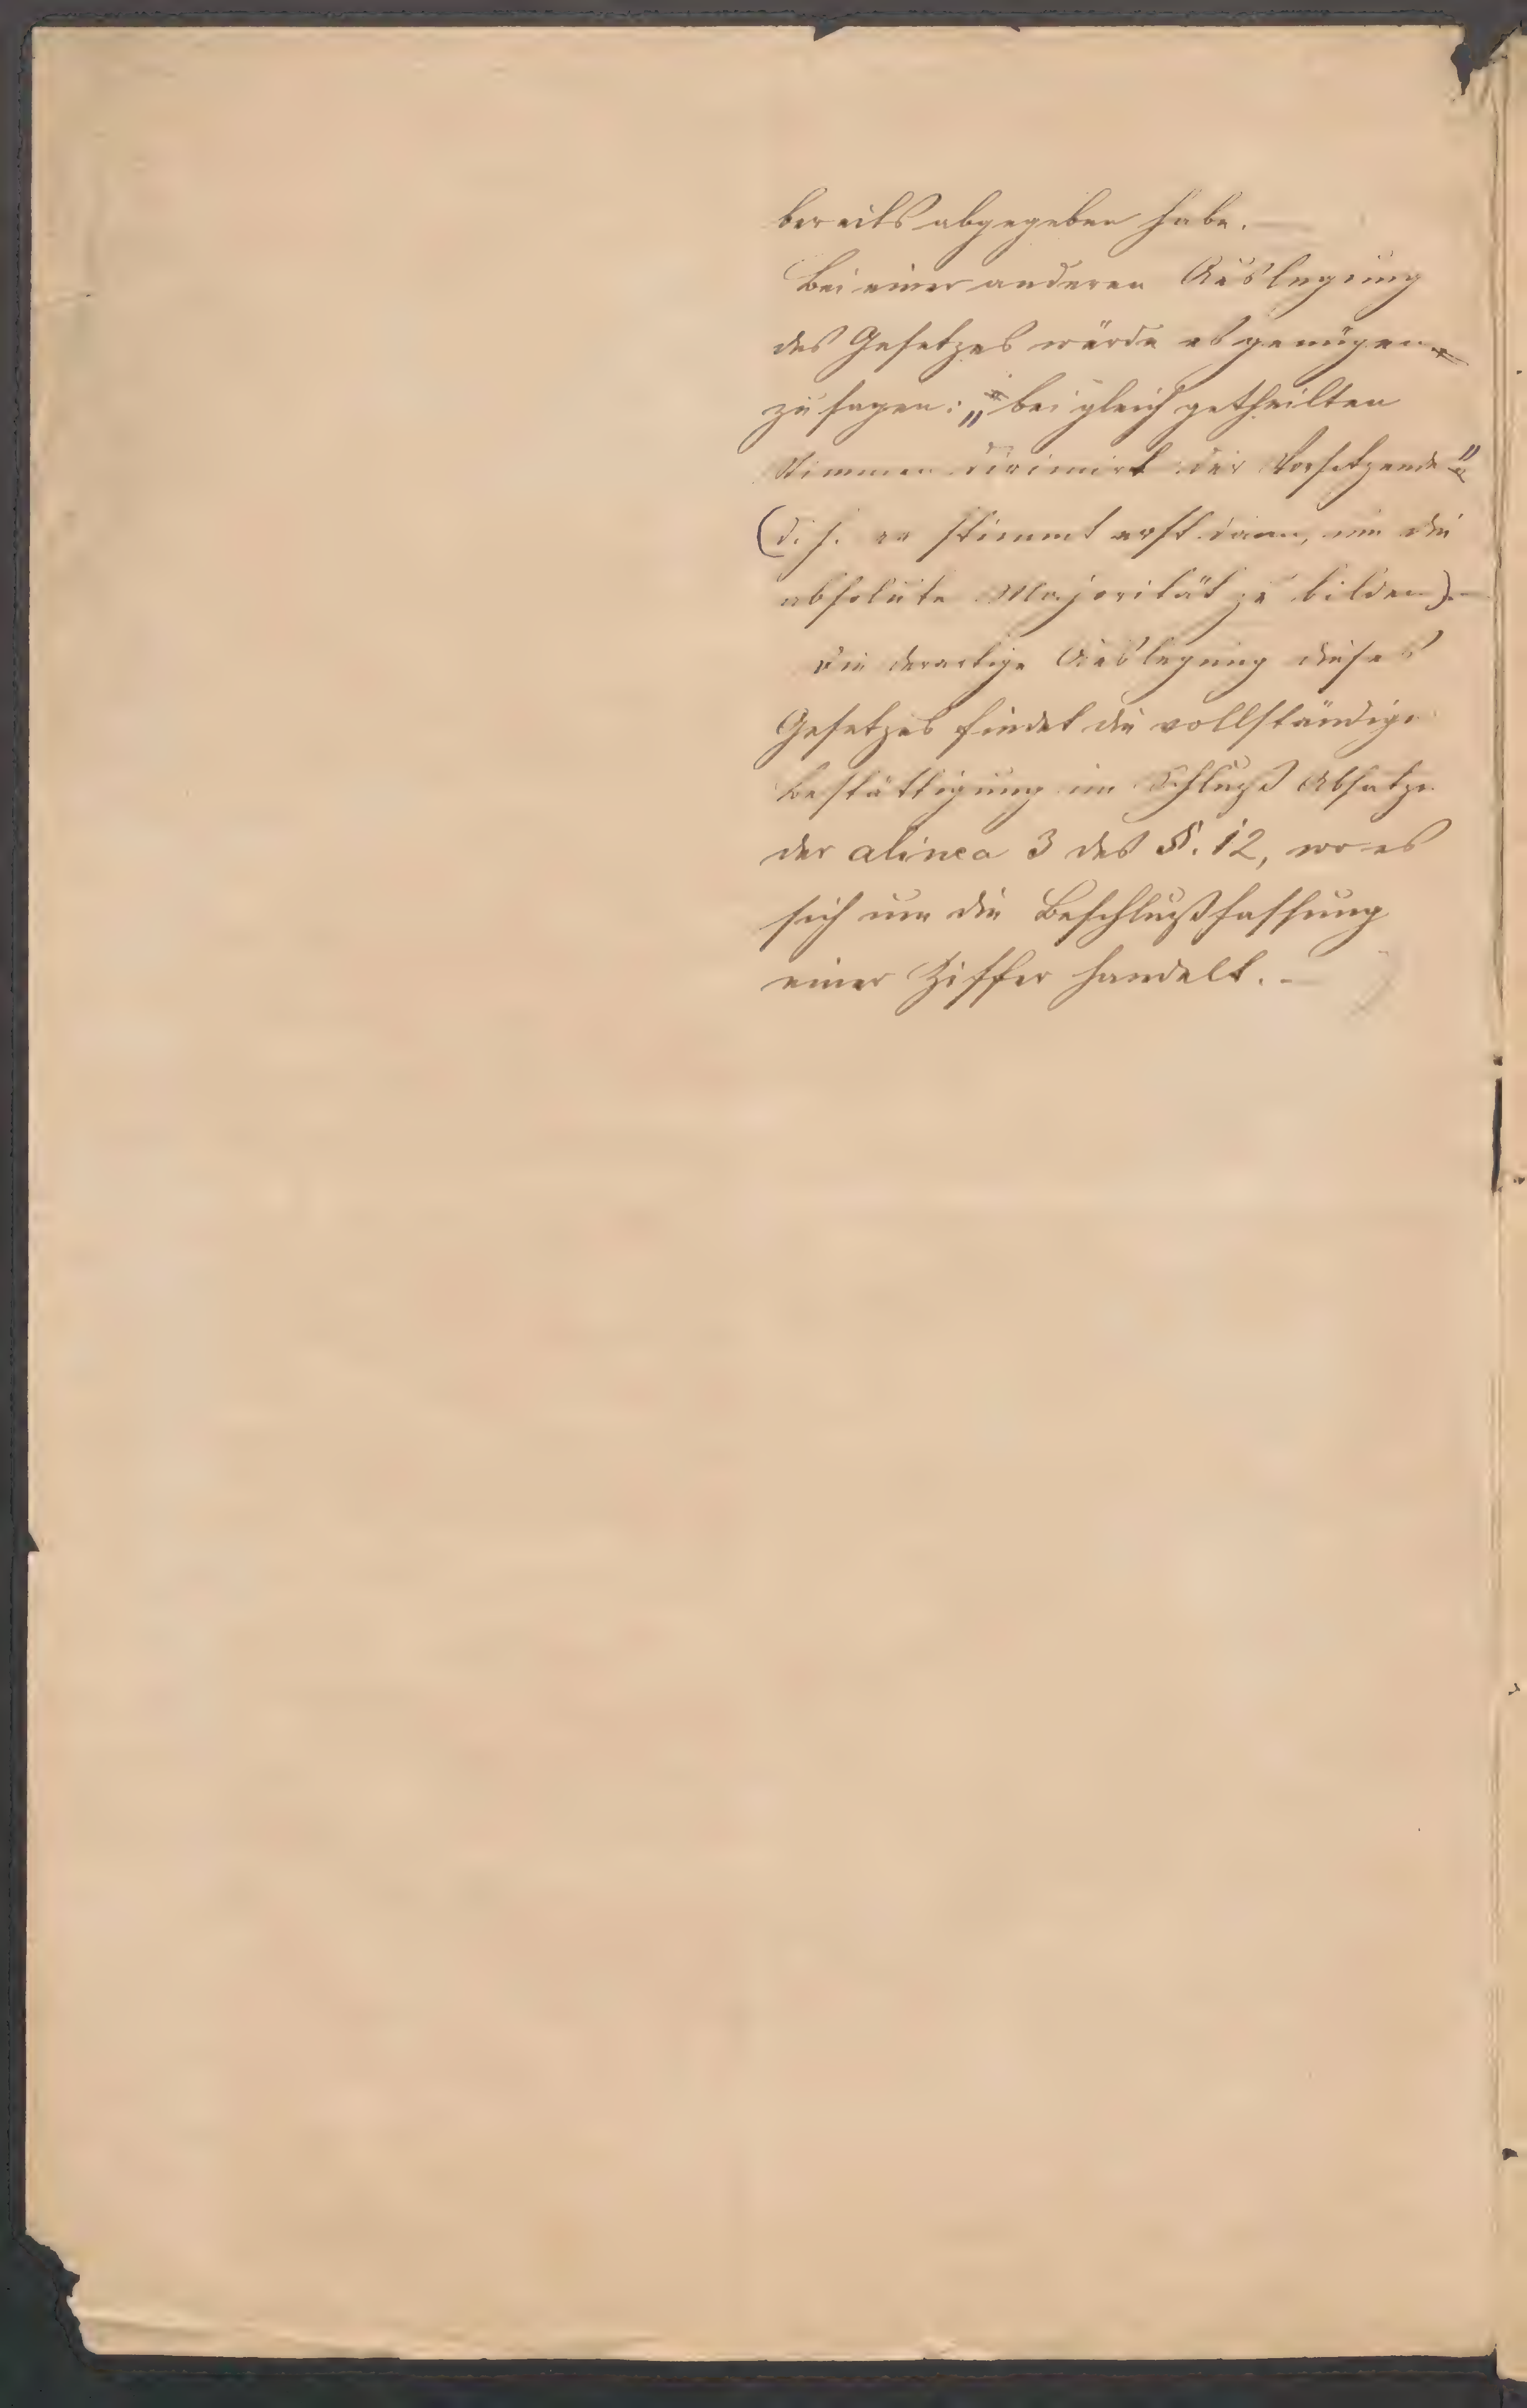 bereits abgegeben habe. —
Bei einer anderen Auslegung
des Gesetzes würde es genügen
zu sagen: „bei gleich getheilten
Stimmen dirimirt der Vorsitzende"
(d. h. er stimmt erst dann, um die
absolute Majorität zu bilden). —
Die derartige Auslegung dieses
Gesetzes findet die vollständige
Bestättigung im Schluß Absatze
der alinea 3 des §. 12, wo es
sich um die Beschlußfassung
einer Ziffer handelt. —